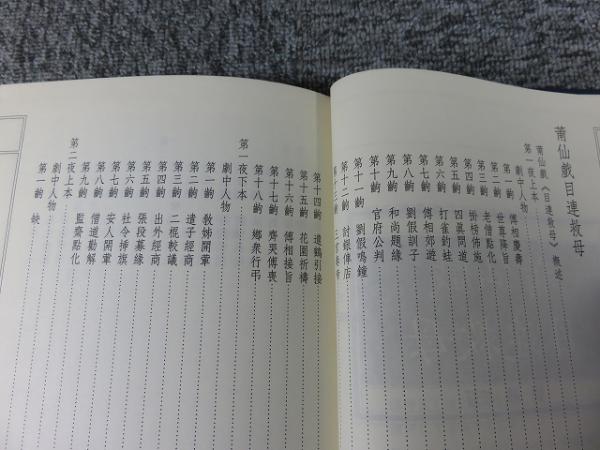 莆仙戲目連救母
莆仙戲《目連救母》概述
第一夜上本
劇中人物
第一齣 傅相慶壽
第二齣 世尊降旨
第三齣 老僧點化
第四齣 掛榜佈施
第五齣 四眞問道
第六齣 打雀釣蛙
第七齣 傅相郊遊
第八齣 劉假訓子
第九齣 和尚題緣
第十齣 官府公判
第十一齣 劉假鳴鐘
第十二齣 討銀傅店
第十三齣 三官
第十四齣 遣鶴引接
第十五齣 花園祈禱
第十六齣 傅相接旨
第十七齣 齊哭傅喪
第十八齣 鄉衆行弔
第一夜下本
劇中人物
第一齣 敎姊開葷
第二齣 遣子經商
第三齣 二棍較議
第四齣 出外經商
第五齣 張段募緣
第六齣 社令揷旗
第七齣 安人開葷
第八齣 僧道勸解
第九齣 監齋點化
第二夜上本
劇中人物
第一齣 缺